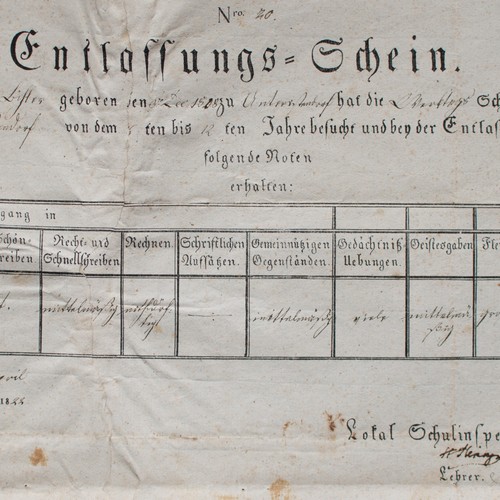 Nro. 20.
Entlassungs-Schein.
geboren den Dec 1808 zu hat die Werktags Sch
dorf von dem ten bis 12 ten Jahre besucht und bey der Entlas
folgende Noten
erhalten:
gang in
Schön-
reiben
Recht- und
Schnellschreiben
Rechnen.
Schriftlichen
Aufsätzen.
Gemeinnützigen
Gegenständen.
Gedächtniß-
Uebungen.
Geistesgaben
Fle
mittelmäßig
mittelmäßig
viele
mittelmä
ßig
gro
pril
18
Lokal Schulinspe
Lehrer.